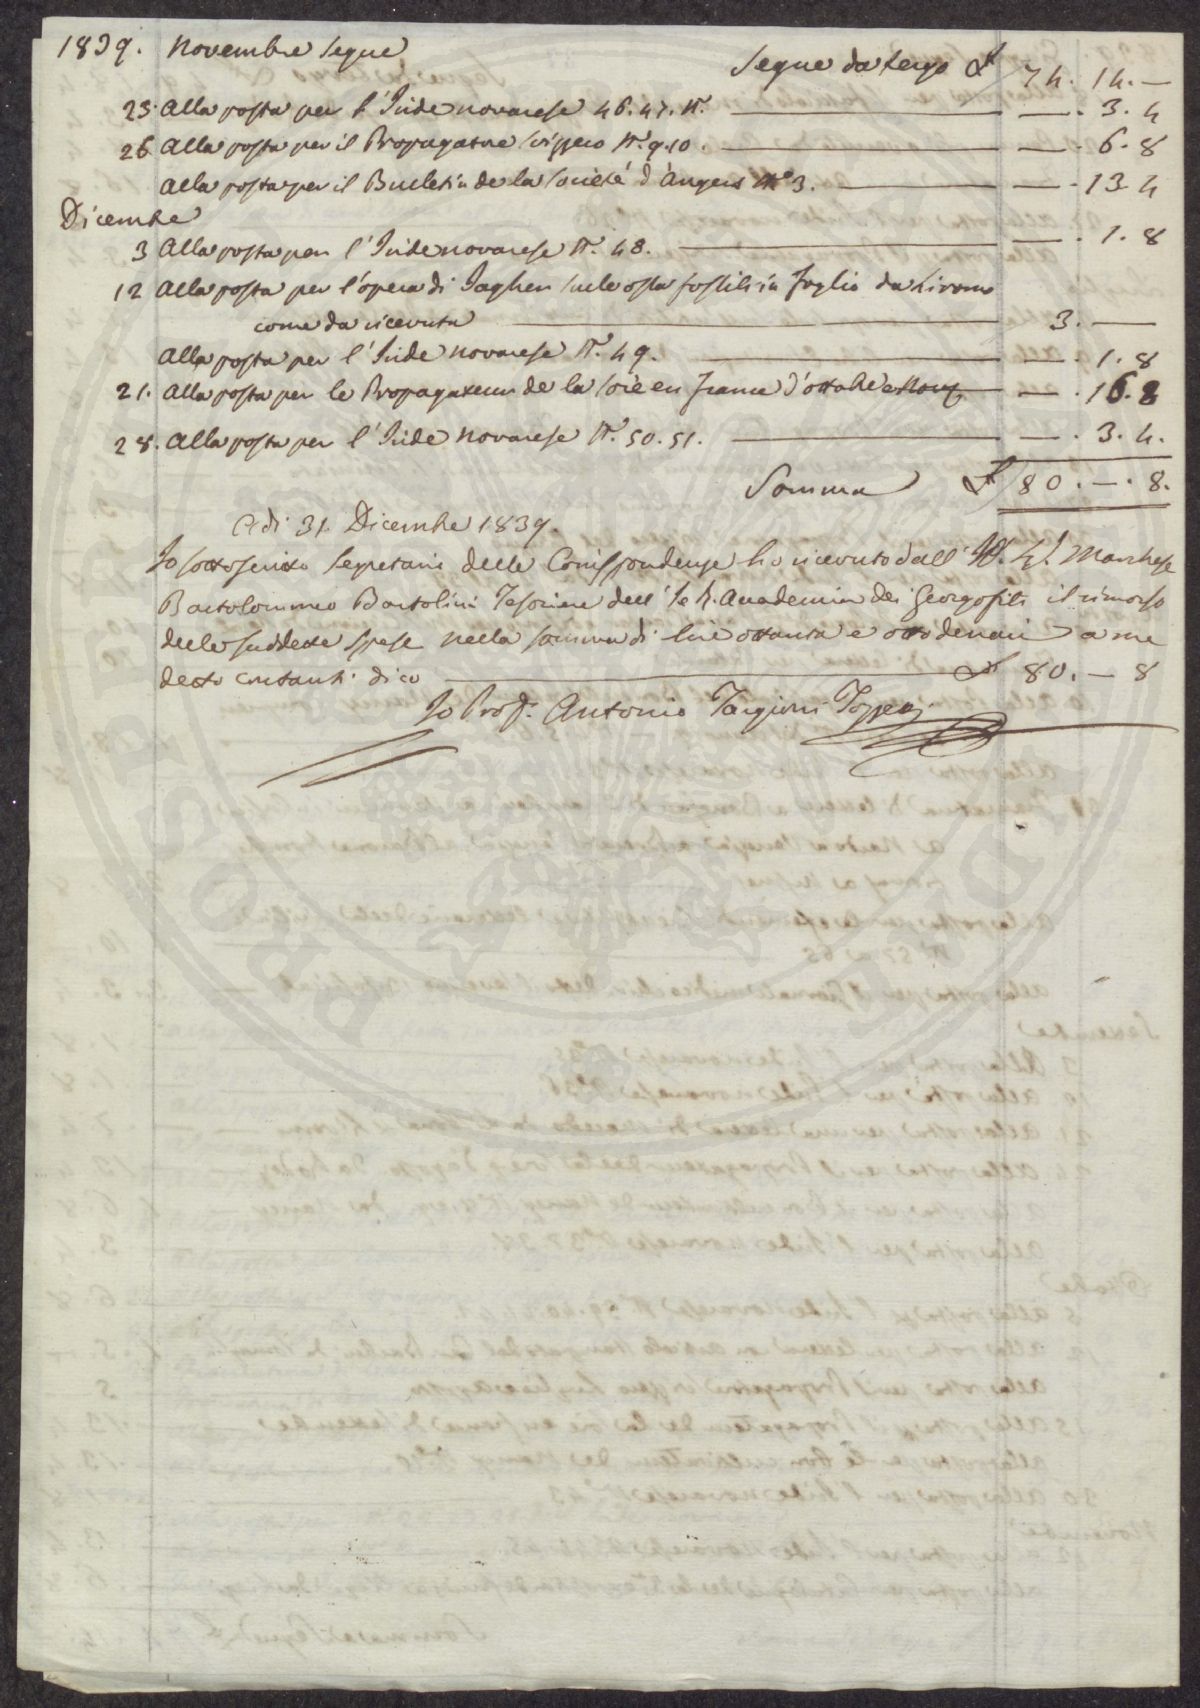 1839. Novembre segue
Segue da tergo £ 74. 14. —
23 Alla posta per l'Iride novarese 46. 47. N.° — — . 3. 4
26 Alla posta per il Propagatore svizzero N.° 9. 10. — — . 6. 8
Alla posta per il Bulletin de la Société d'Angers N° 3. — — . 13. 4
Dicembre
3 Alla posta per l'Iride novarese N.° 48. — — . 1. 8
12 Alla posta per l'opera di Jagher sulle ossa fossili in foglio da Livorno
come da ricevuta — 3. —
Alla posta per l'Iride novarese N.° 49. — — . 1. 8
21. Alla posta per le Propagateur de la soie en France d'ottobre e — . 16. 8
28. Alla posta per l'Iride novarese N.° 50. 51. — — . 3. 4.
Somma £ 80. — . 8.
A dì 31. Dicembre 1839.
Io sottoscritto Segretario delle Corrispondenze ho ricevuto dall' Marchese
Bartolommeo Bartolini Tesoriere dell' I. e R. Accademia dei Georgofili il rimorso
delle suddette spese nella somma di lire ottanta e otto denari a me
detto contanti dico — £ 80. — 8
Io Prof. Antonio Targioni Tozzetti
PROSPERITÀ